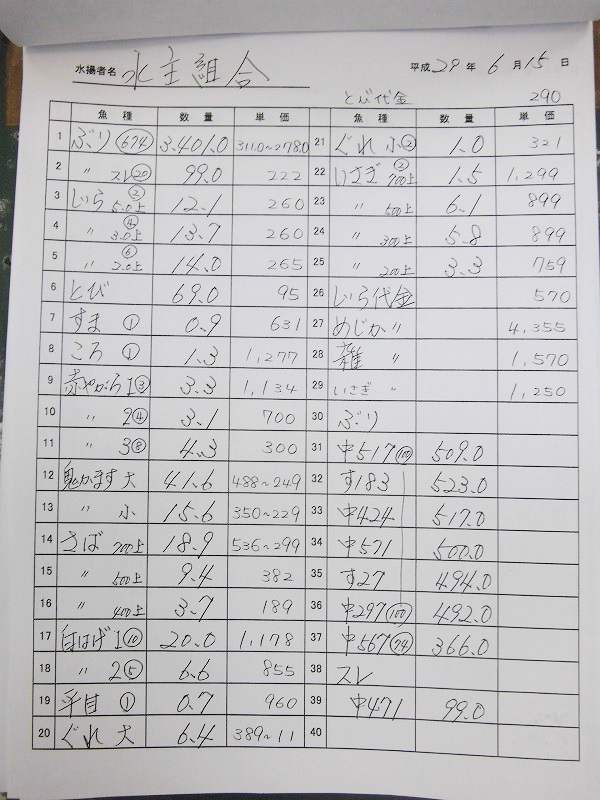 水揚者名 水主組合 平成29年6月15日
とび代金 290
魚種 数量 単価 魚種 数量 単価
1 ぶり(674) 3.401.0 311.0~278.0
2 〃 スレ(20) 99.0 222
3 しいら 5.0上(2) 12.1 260
4 〃 3.0上(4) 13.7 260
5 〃 2.0上(6) 14.0 265
6 とび 69.0 95
7 すま(1) 0.9 631
8 ころ(1) 1.3 1,277
9 赤やがら1(3) 3.3 1,134
10 〃 2(4) 3.1 700
11 〃 3(8) 4.3 300
12 鬼かます大 41.6 488~249
13 〃 小 15.6 350~229
14 さば 700上 18.9 536~299
15 〃 500上 9.4 382
16 〃 400上 3.7 189
17 白はげ1(10) 20.0 1,178
18 〃 2(5) 6.6 855
19 平目(1) 0.7 960
20 ぐれ 大 6.4 389~11
21 ぐれ 小(2) 1.0 321
22 いさぎ 700上(2) 1.5 1,299
23 〃 500上 6.1 899
24 〃 300上 5.8 899
25 〃 200上 3.3 759
26 しいら代金 570
27 めじか〃 4,355
28 雑 〃 1,570
29 いさぎ 〃 1,250
30 ぶり
31 中517(100) 509.0
32 す183 523.0
33 中424 517.0
34 中571 500.0
35 す27 494.0
36 中297(100) 492.0
37 中567(74) 366.0
38 スレ
39 中471 99.0
40